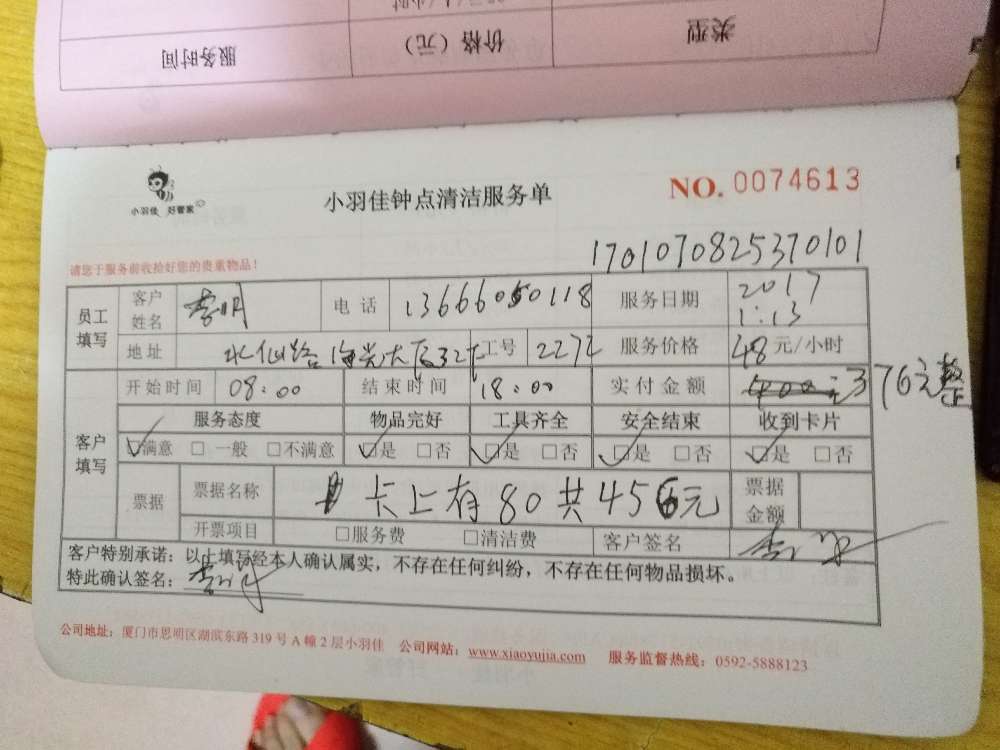 服务时间 价格（元） 类型
小羽佳 好管家
小羽佳钟点清洁服务单
NO. 0074613
1701070825370101
请您于服务前收拾好您的贵重物品！
员工填写 客户姓名 李明 电话 13666050118 服务日期 2017 1:13
地址 水仙路海光大厦32 工号 2272 服务价格 48元/小时
开始时间 08:00 结束时间 18:00 实付金额 376元整
客户填写 服务态度 物品完好 工具齐全 安全结束 收到卡片
☑满意 □一般 □不满意 ☑是 □否 ☑是 □否 ☑是 □否 ☑是 □否
票据 票据名称 卡上有80共456元 票据金额
开票项目 □服务费 □清洁费 客户签名
客户特别承诺：以上填写经本人确认属实，不存在任何纠纷，不存在任何物品损坏。
特此确认签名：
公司地址：厦门市思明区湖滨东路319号A幢2层小羽佳 公司网站：www.xiaoyujia.com 服务监督热线：0592-5888123